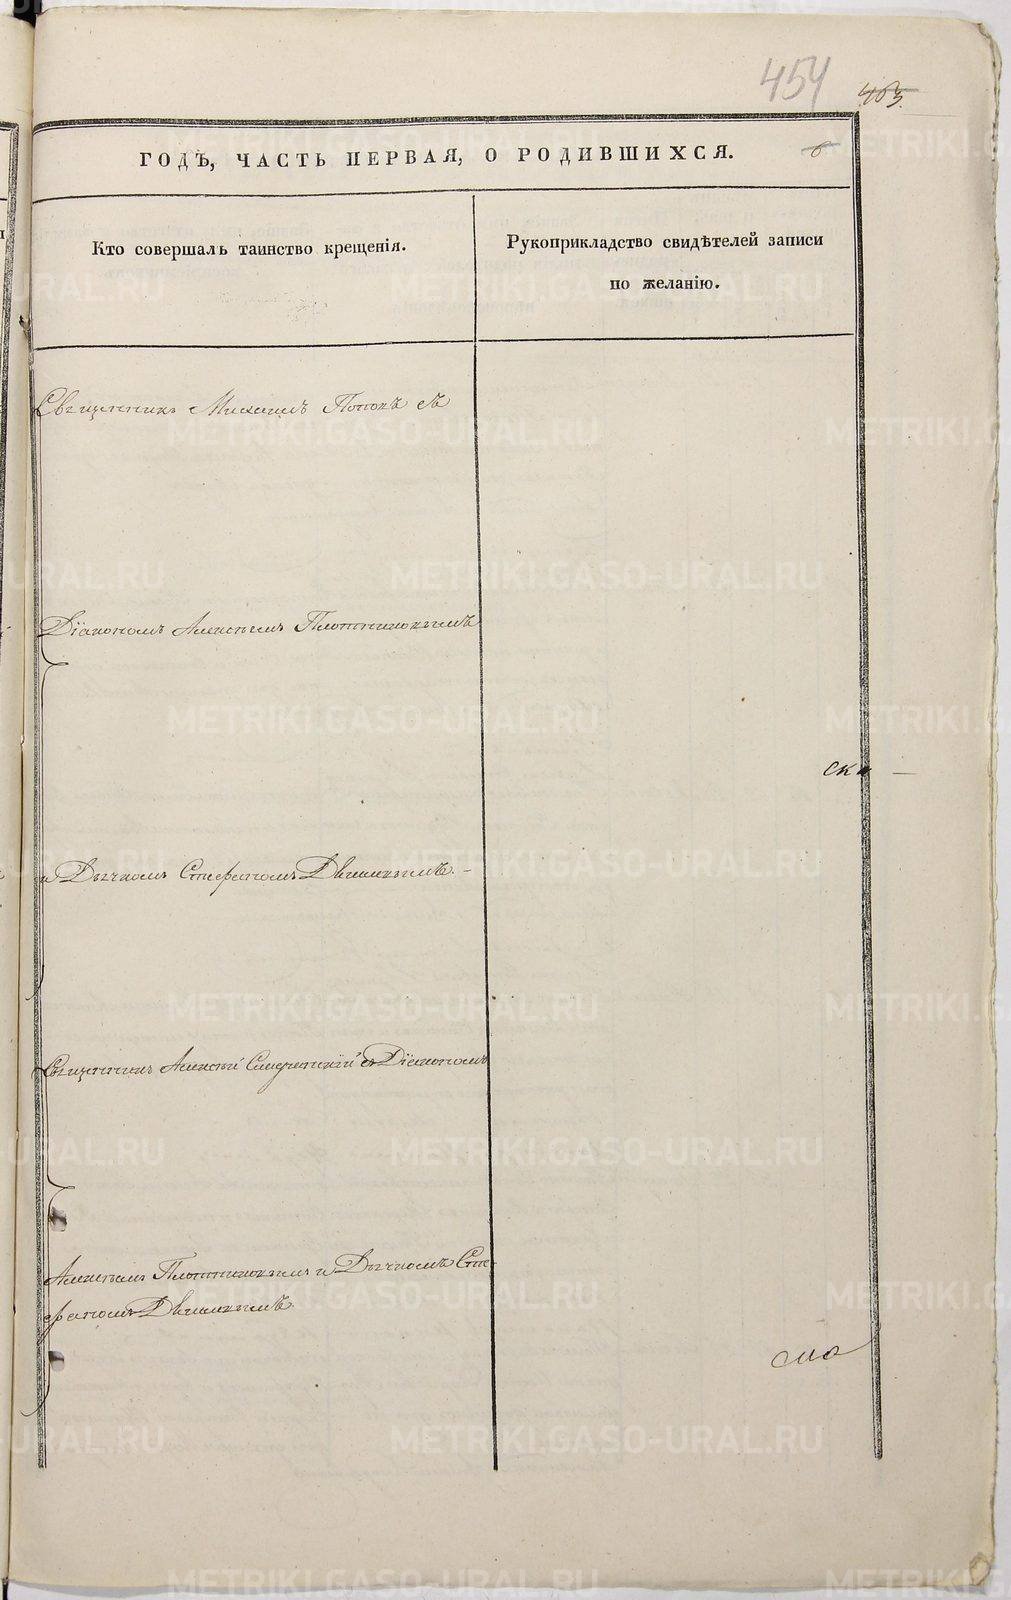 454
463.
ГОДЪ, ЧАСТЬ ПЕРВАЯ, О РОДИВШИХСЯ.
6
Кто совершалъ таинство крещенія.
Рукоприкладство свидѣтелей записи
по желанію.
Священникъ Михаилъ Поповъ съ
Діакономъ Алексѣемъ Плотниковымъ
ска
и Дьячкомъ Стефаномъ Двиняковымъ.
Священникъ Алексѣй Смеретскій съ Діакономъ
Алексѣемъ Плотниковымъ и Дьячкомъ Сте-
фаномъ
METRIKI.GASO-URAL.RU